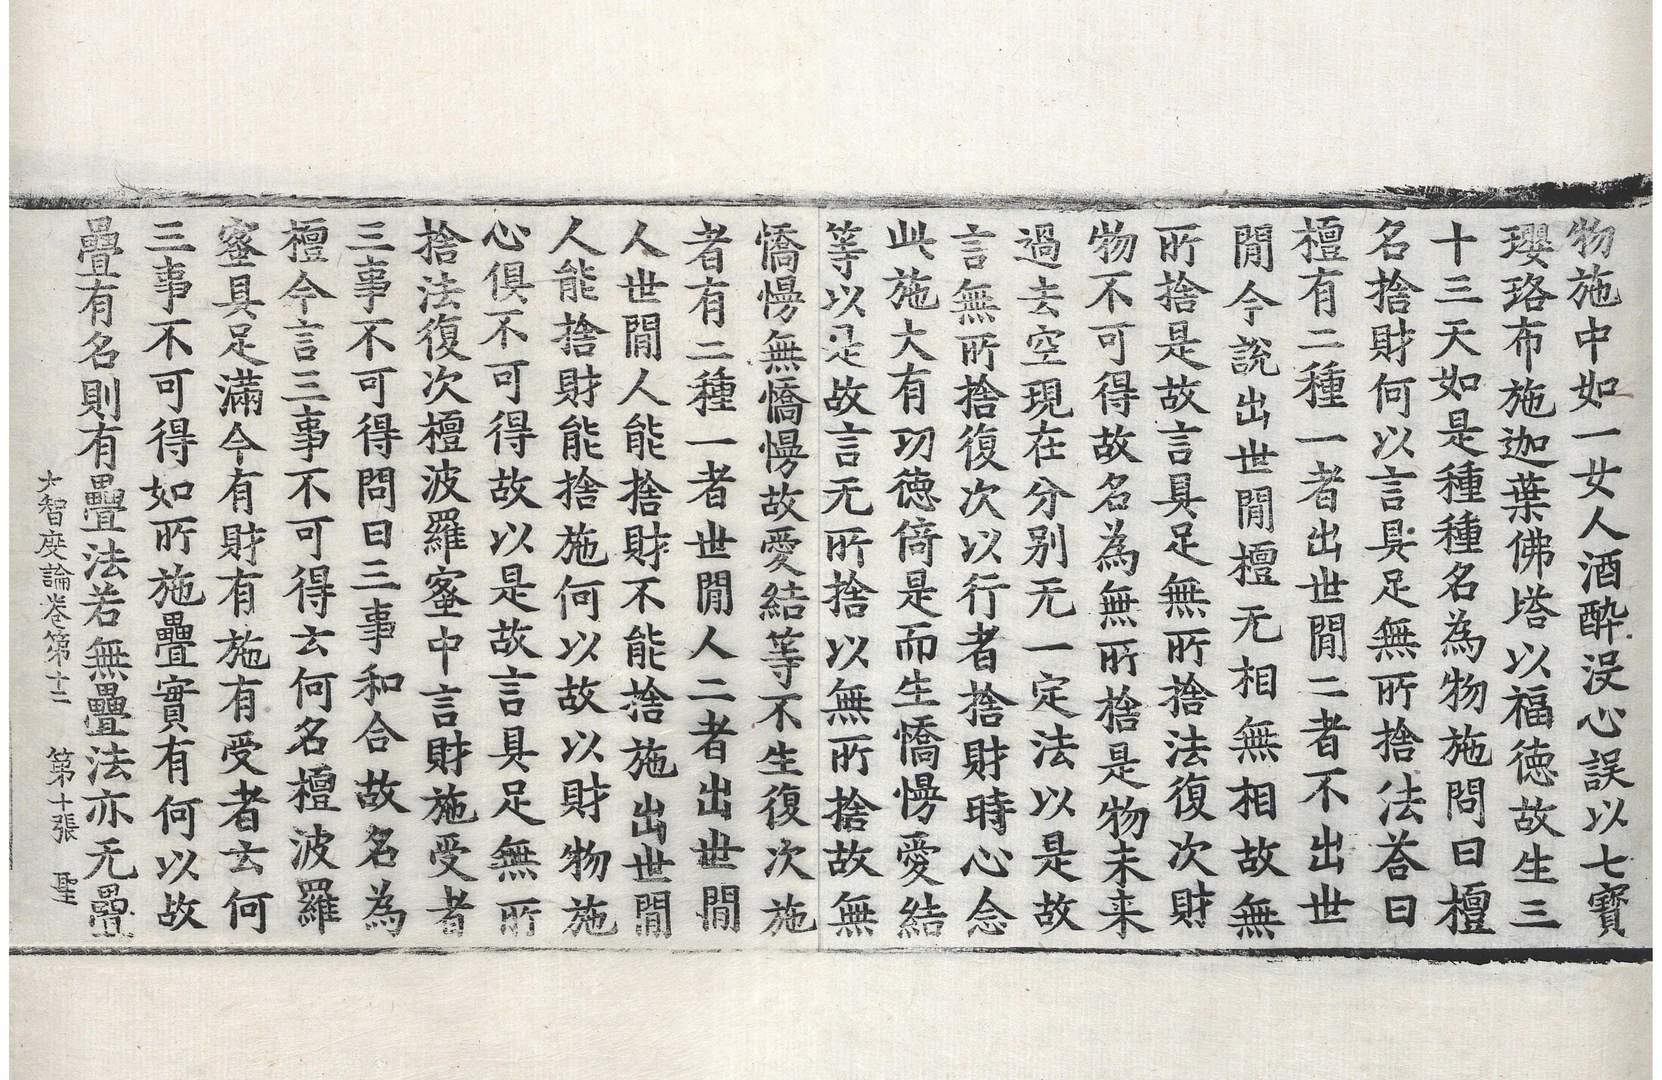 物施中如一女人酒醉没心誤以七寶
瓔珞布施迦葉佛塔以福德故生三
十三天如是種種名為物施問曰檀
名捨財何以言具足無所捨法荅曰
檀有二種一者出世閒二者不出世
閒今說出世閒檀无相無相故無
所捨是故言具足無所捨法復次財
物不可得故名為無所捨是物未来
過去空現在分別无一定法以是故
言無所捨復次以行者捨財時心念
此施大有功德倚是而生憍慢愛結
等以是故言无所捨以無所捨故無
憍慢無憍慢故愛結等不生復次施
者有二種一者世閒人二者出世閒
人世閒人能捨財不能捨施出世閒
人能捨財能捨施何以故以財物施
心俱不可得故以是故言具足無所
捨法復次檀波羅蜜中言財施受者
三事不可得問曰三事和合故名為
檀今言三事不可得云何名檀波羅
蜜具足滿今有財有施有受者云何
三事不可得如所施疊實有何以故
疊有名則有疊法若無疊法亦无疊
大智度論卷第十二 第十張 聖